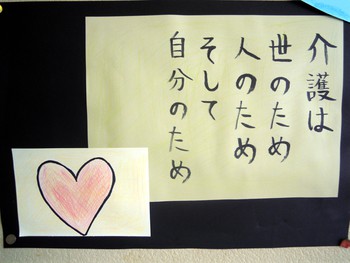 介護は
世のため
人のため
そして
自分のため